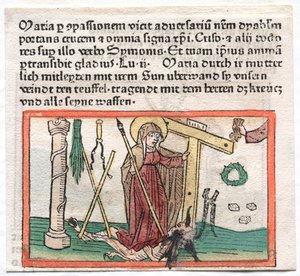 Maria ꝑ ꝯpassionem vicit aduersariũ nr̃m dyabłm
portans crucem ⁊ omnia signa xp̃i. Criso. ⁊ alij docto
res suꝑ illo verbo Symonis. Et tuam ip̃ius animã
ꝑtransibit gladius. Lu. ii. Maria durch ir mutter
lich mitleyten mit irem Sun uberwand sy vnsern
veindt den teuffel. tragendt mit dem herren dz kreücz
vnd alle seyne waffen.